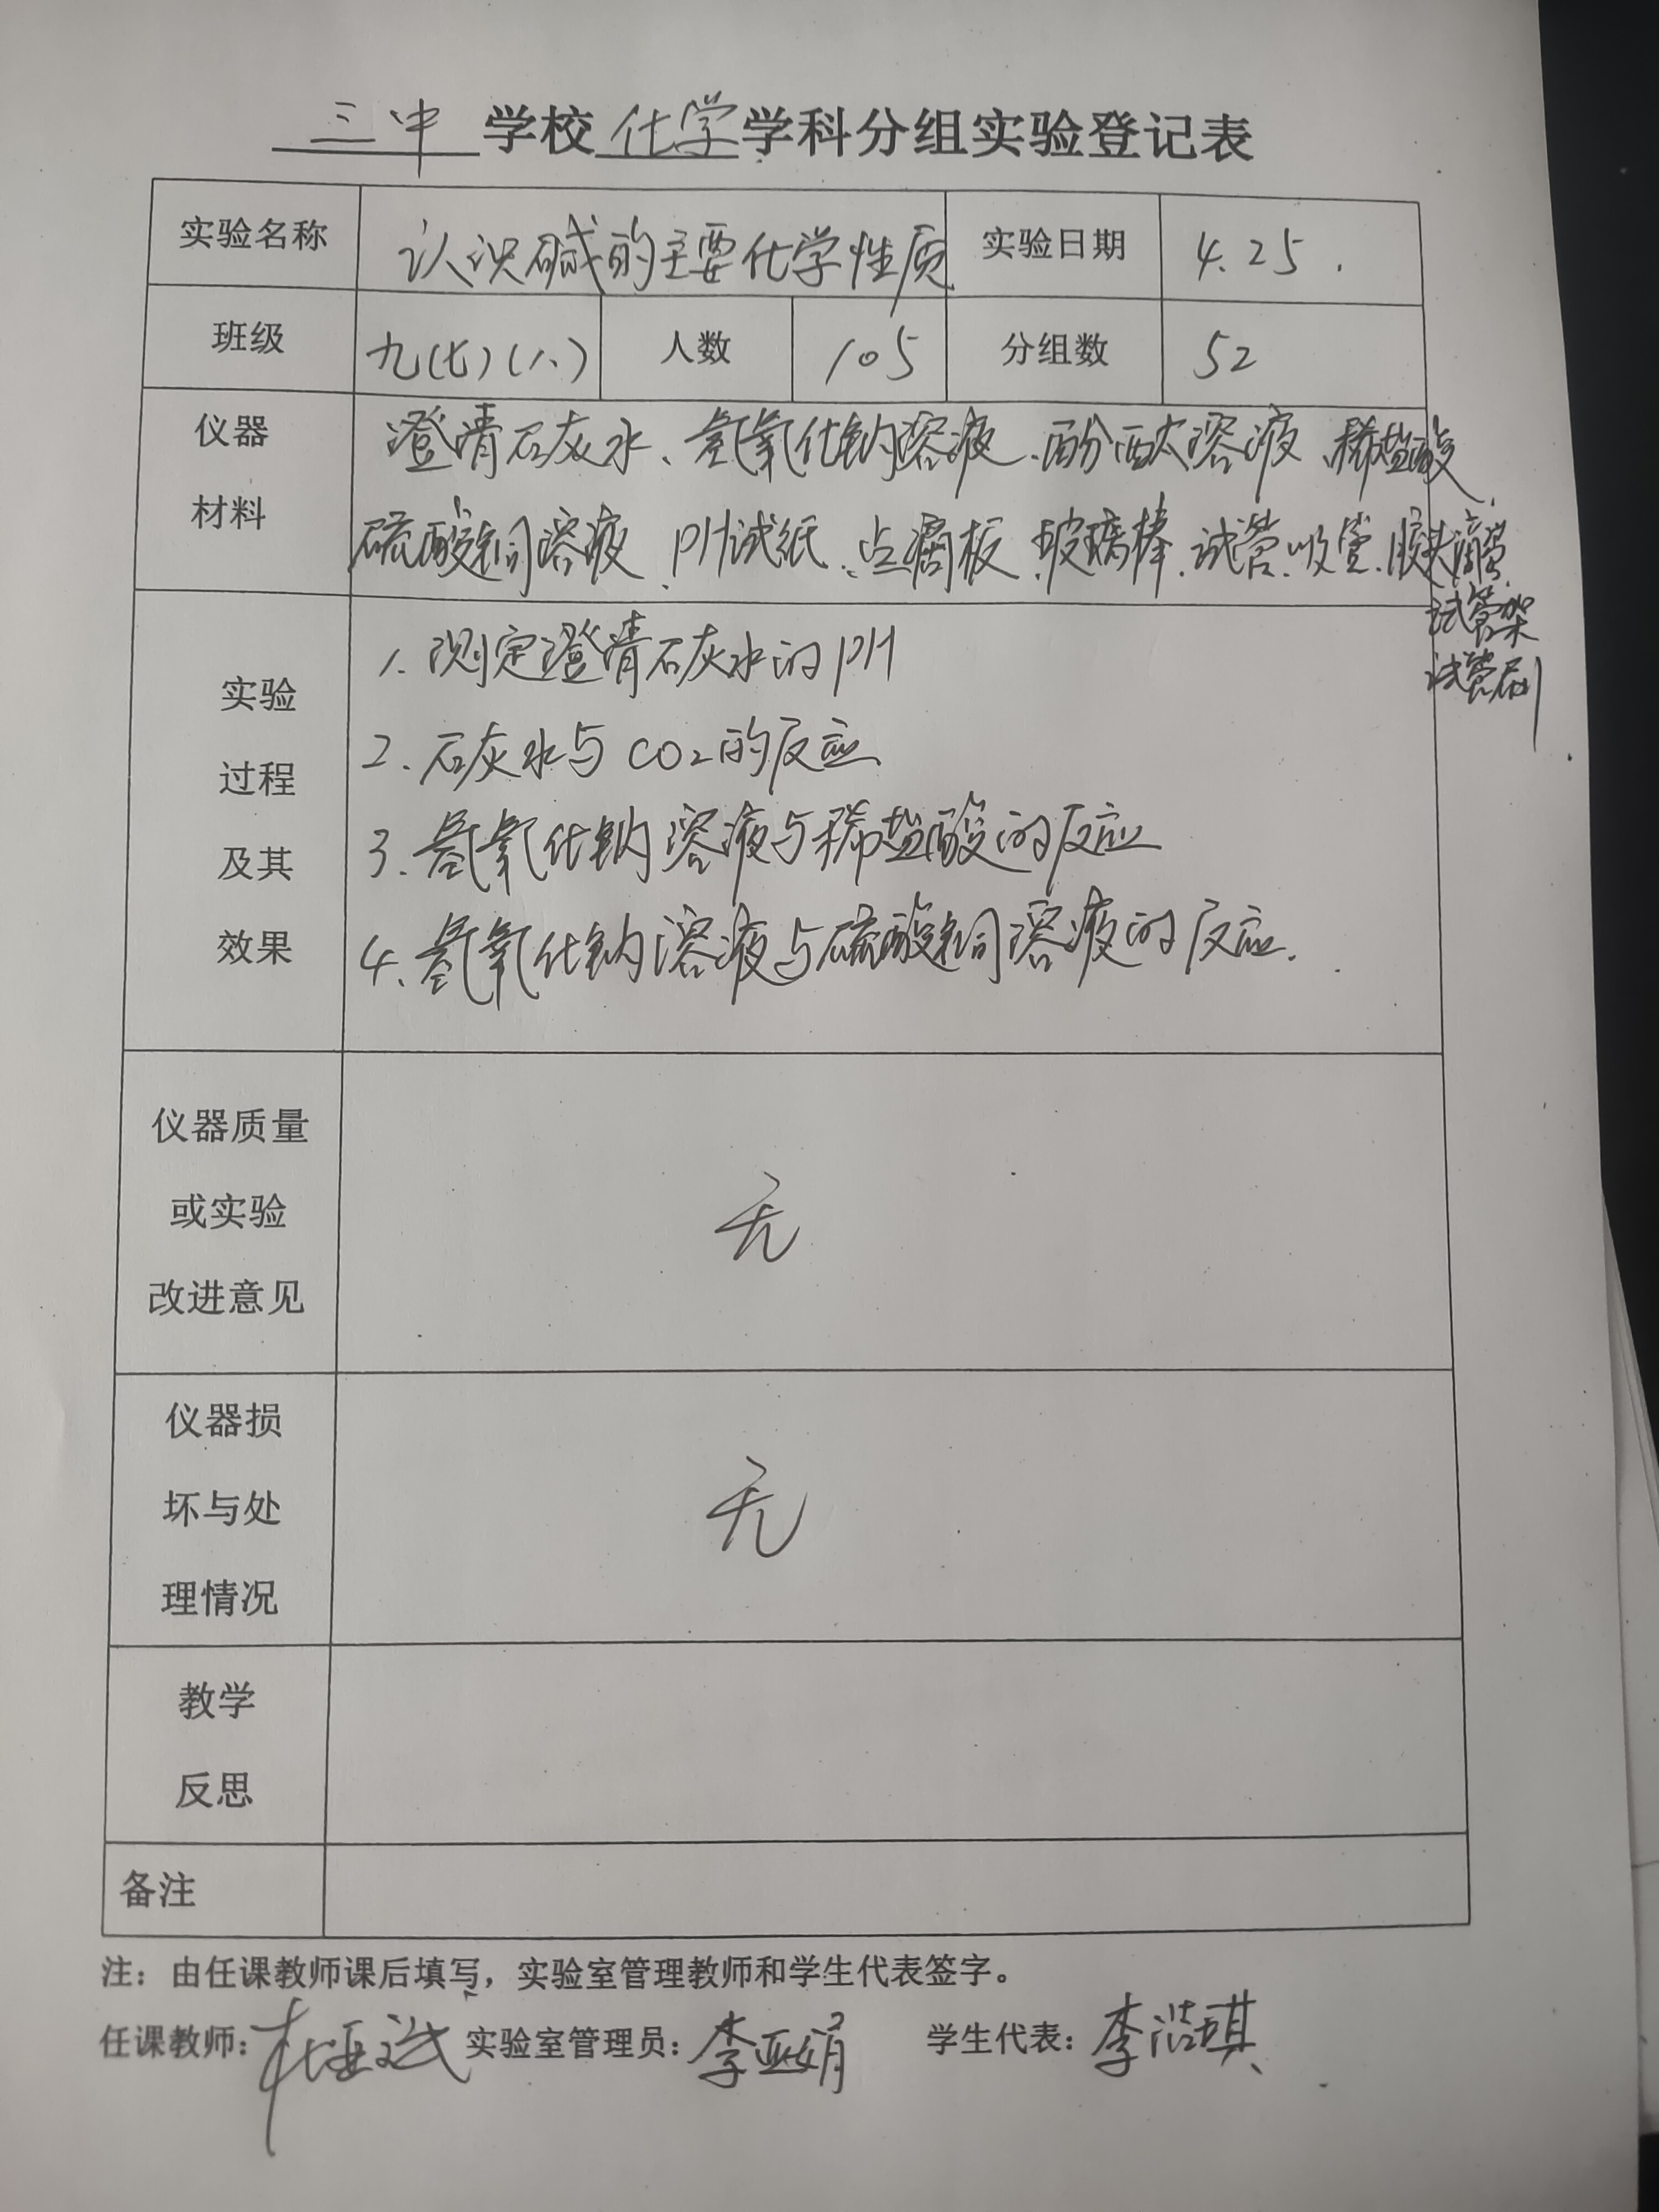 三中 学校 化学 学科分组实验登记表
实验名称 认识碱的主要化学性质 实验日期 4.25.
班级 九(七)(八) 人数 105 分组数 52
仪器
材料
澄清石灰水、氢氧化钠溶液、酚酞溶液、稀盐酸、
硫酸铜溶液、PH试纸、点滴板、玻璃棒、试管、吸管、胶头滴管、
试管架
试管刷
实验
过程
及其
效果
1.测定澄清石灰水的PH
2.石灰水与CO2的反应
3.氢氧化钠溶液与稀盐酸的反应
4.氢氧化钠溶液与硫酸铜溶液的反应.
仪器质量
或实验
改进意见
无
仪器损
坏与处
理情况
无
教学
反思
备注
注：由任课教师课后填写，实验室管理教师和学生代表签字。
任课教师: 实验室管理员: 李亚娟 学生代表: 李浩琪